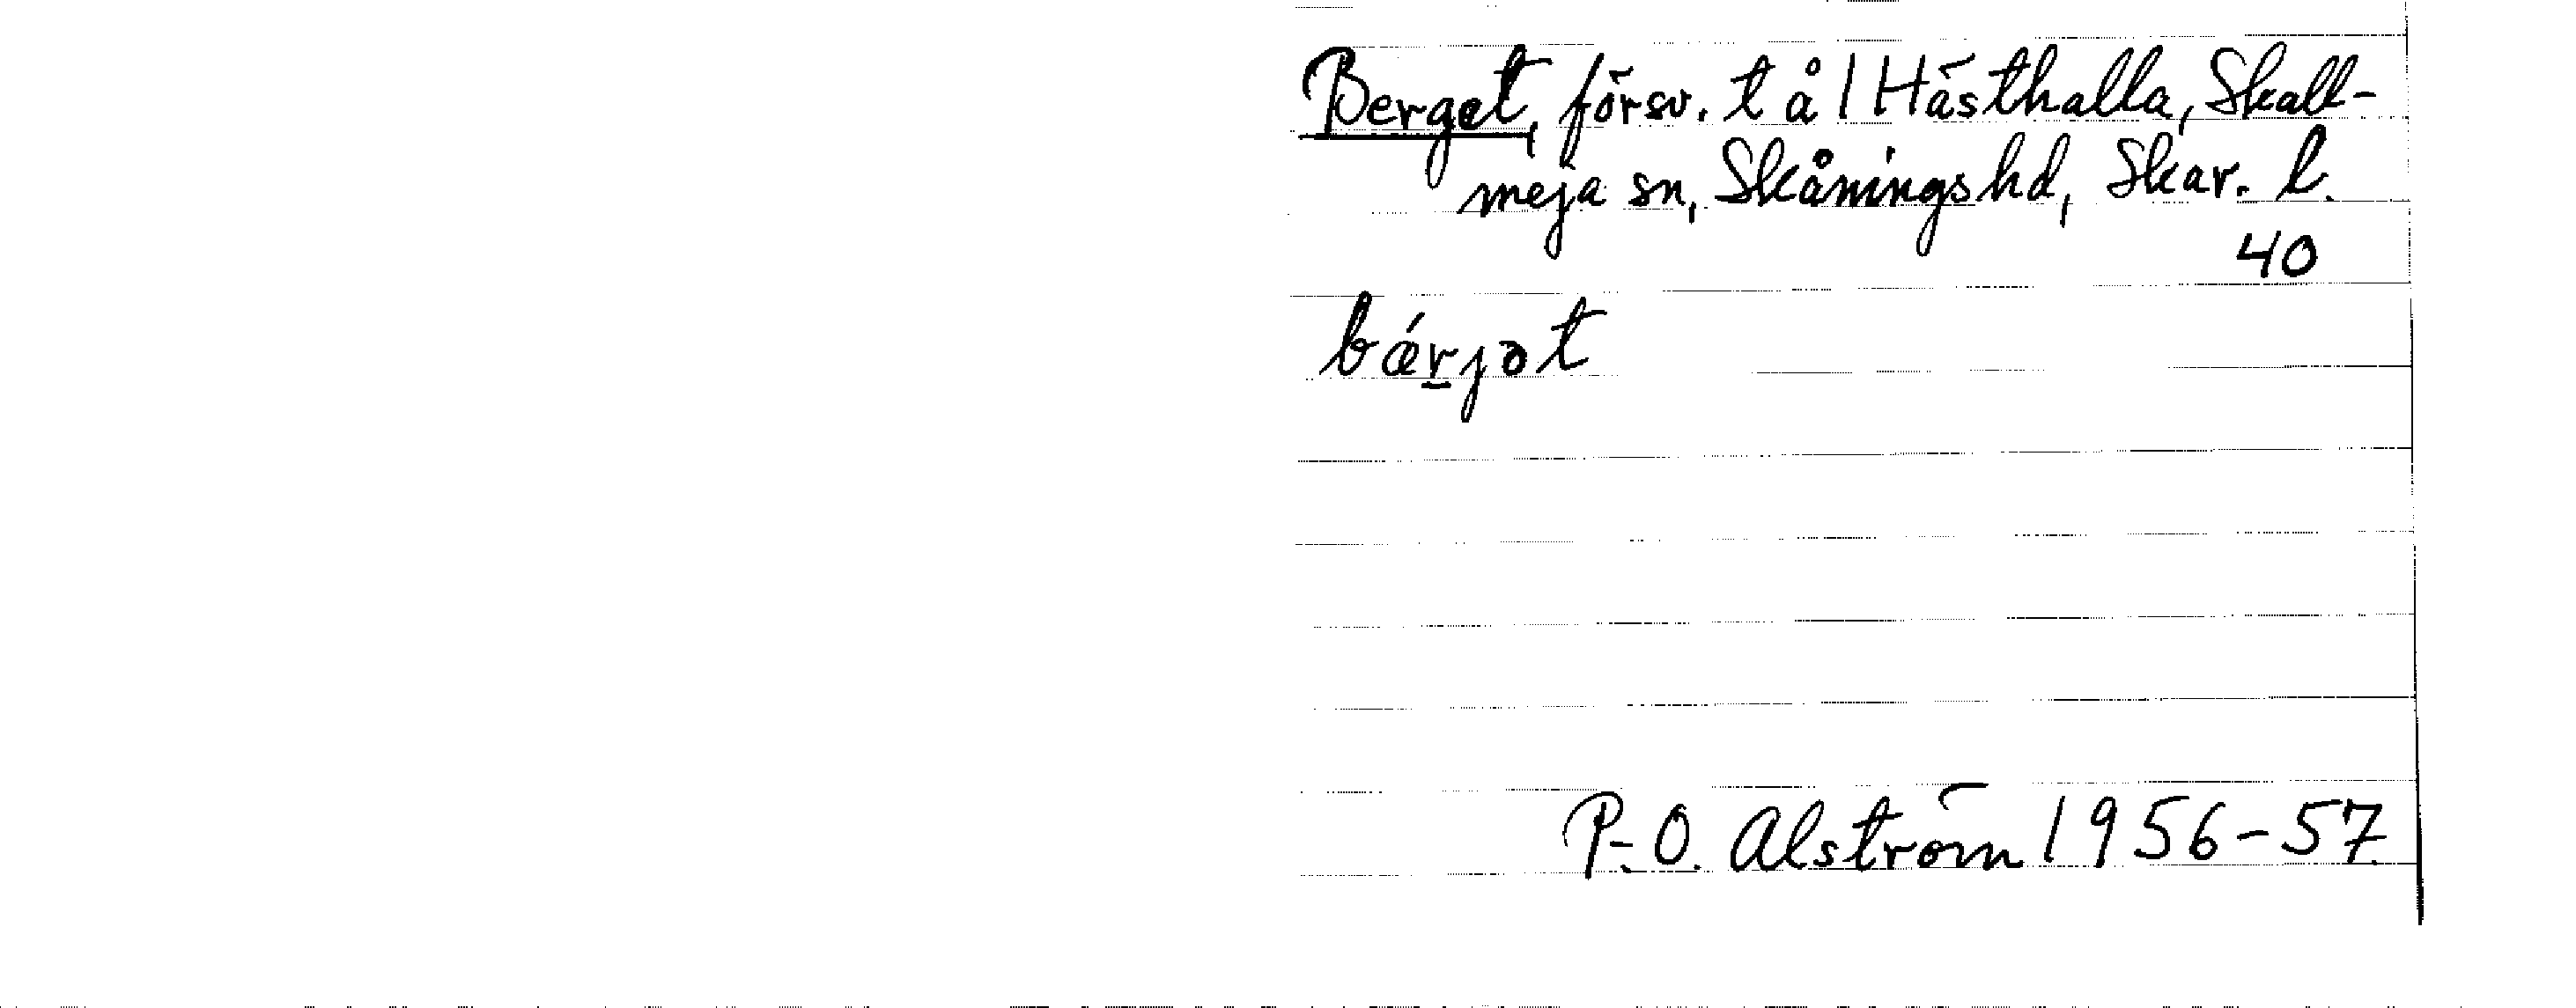 Berget, försv. t å 1 Hästhalla, Skall-
meja sn, Skånings hd, Skar. l.
40
bǽr̲jət
P.-O. Alström 1956-57